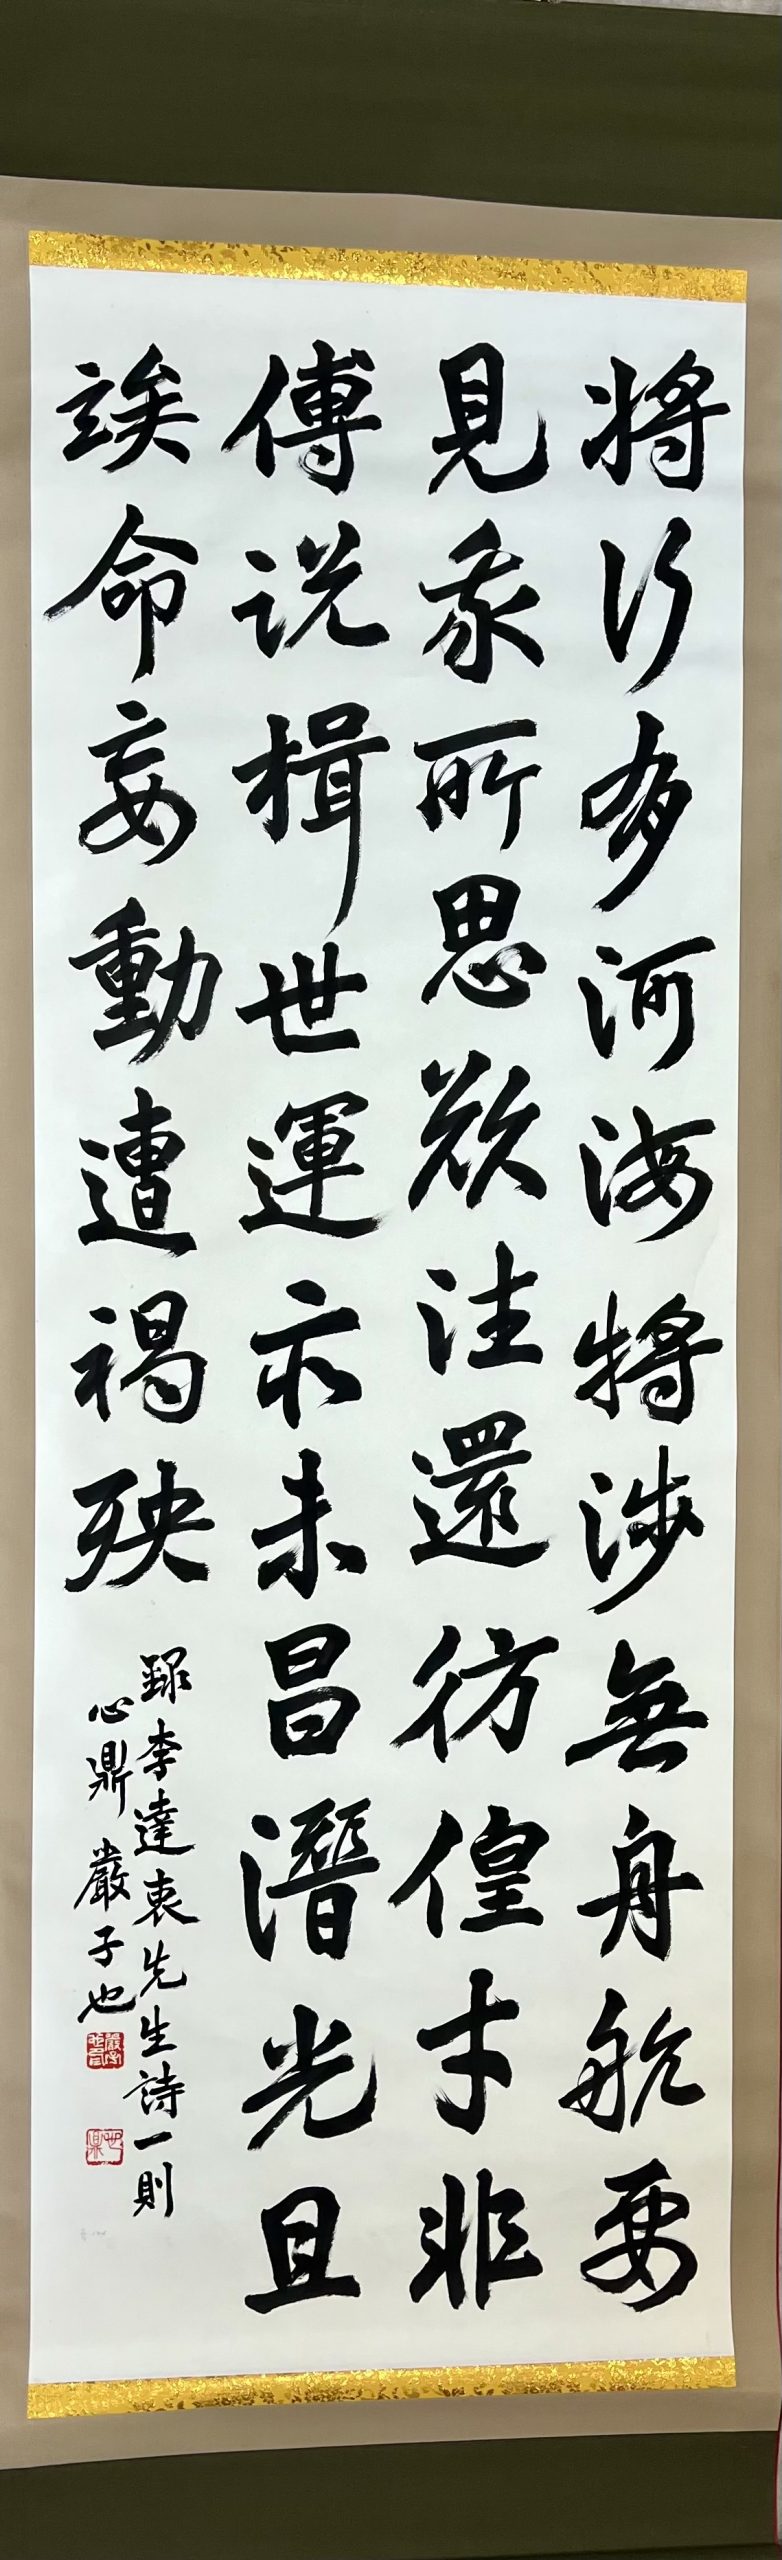 將行有河海將涉無舟航要
見我所思欲往還彷徨才非
傅說楫世運亦未昌潛光且
竢命妄動遭禍殃
録李達衷先生詩一則
心鼎嚴子也